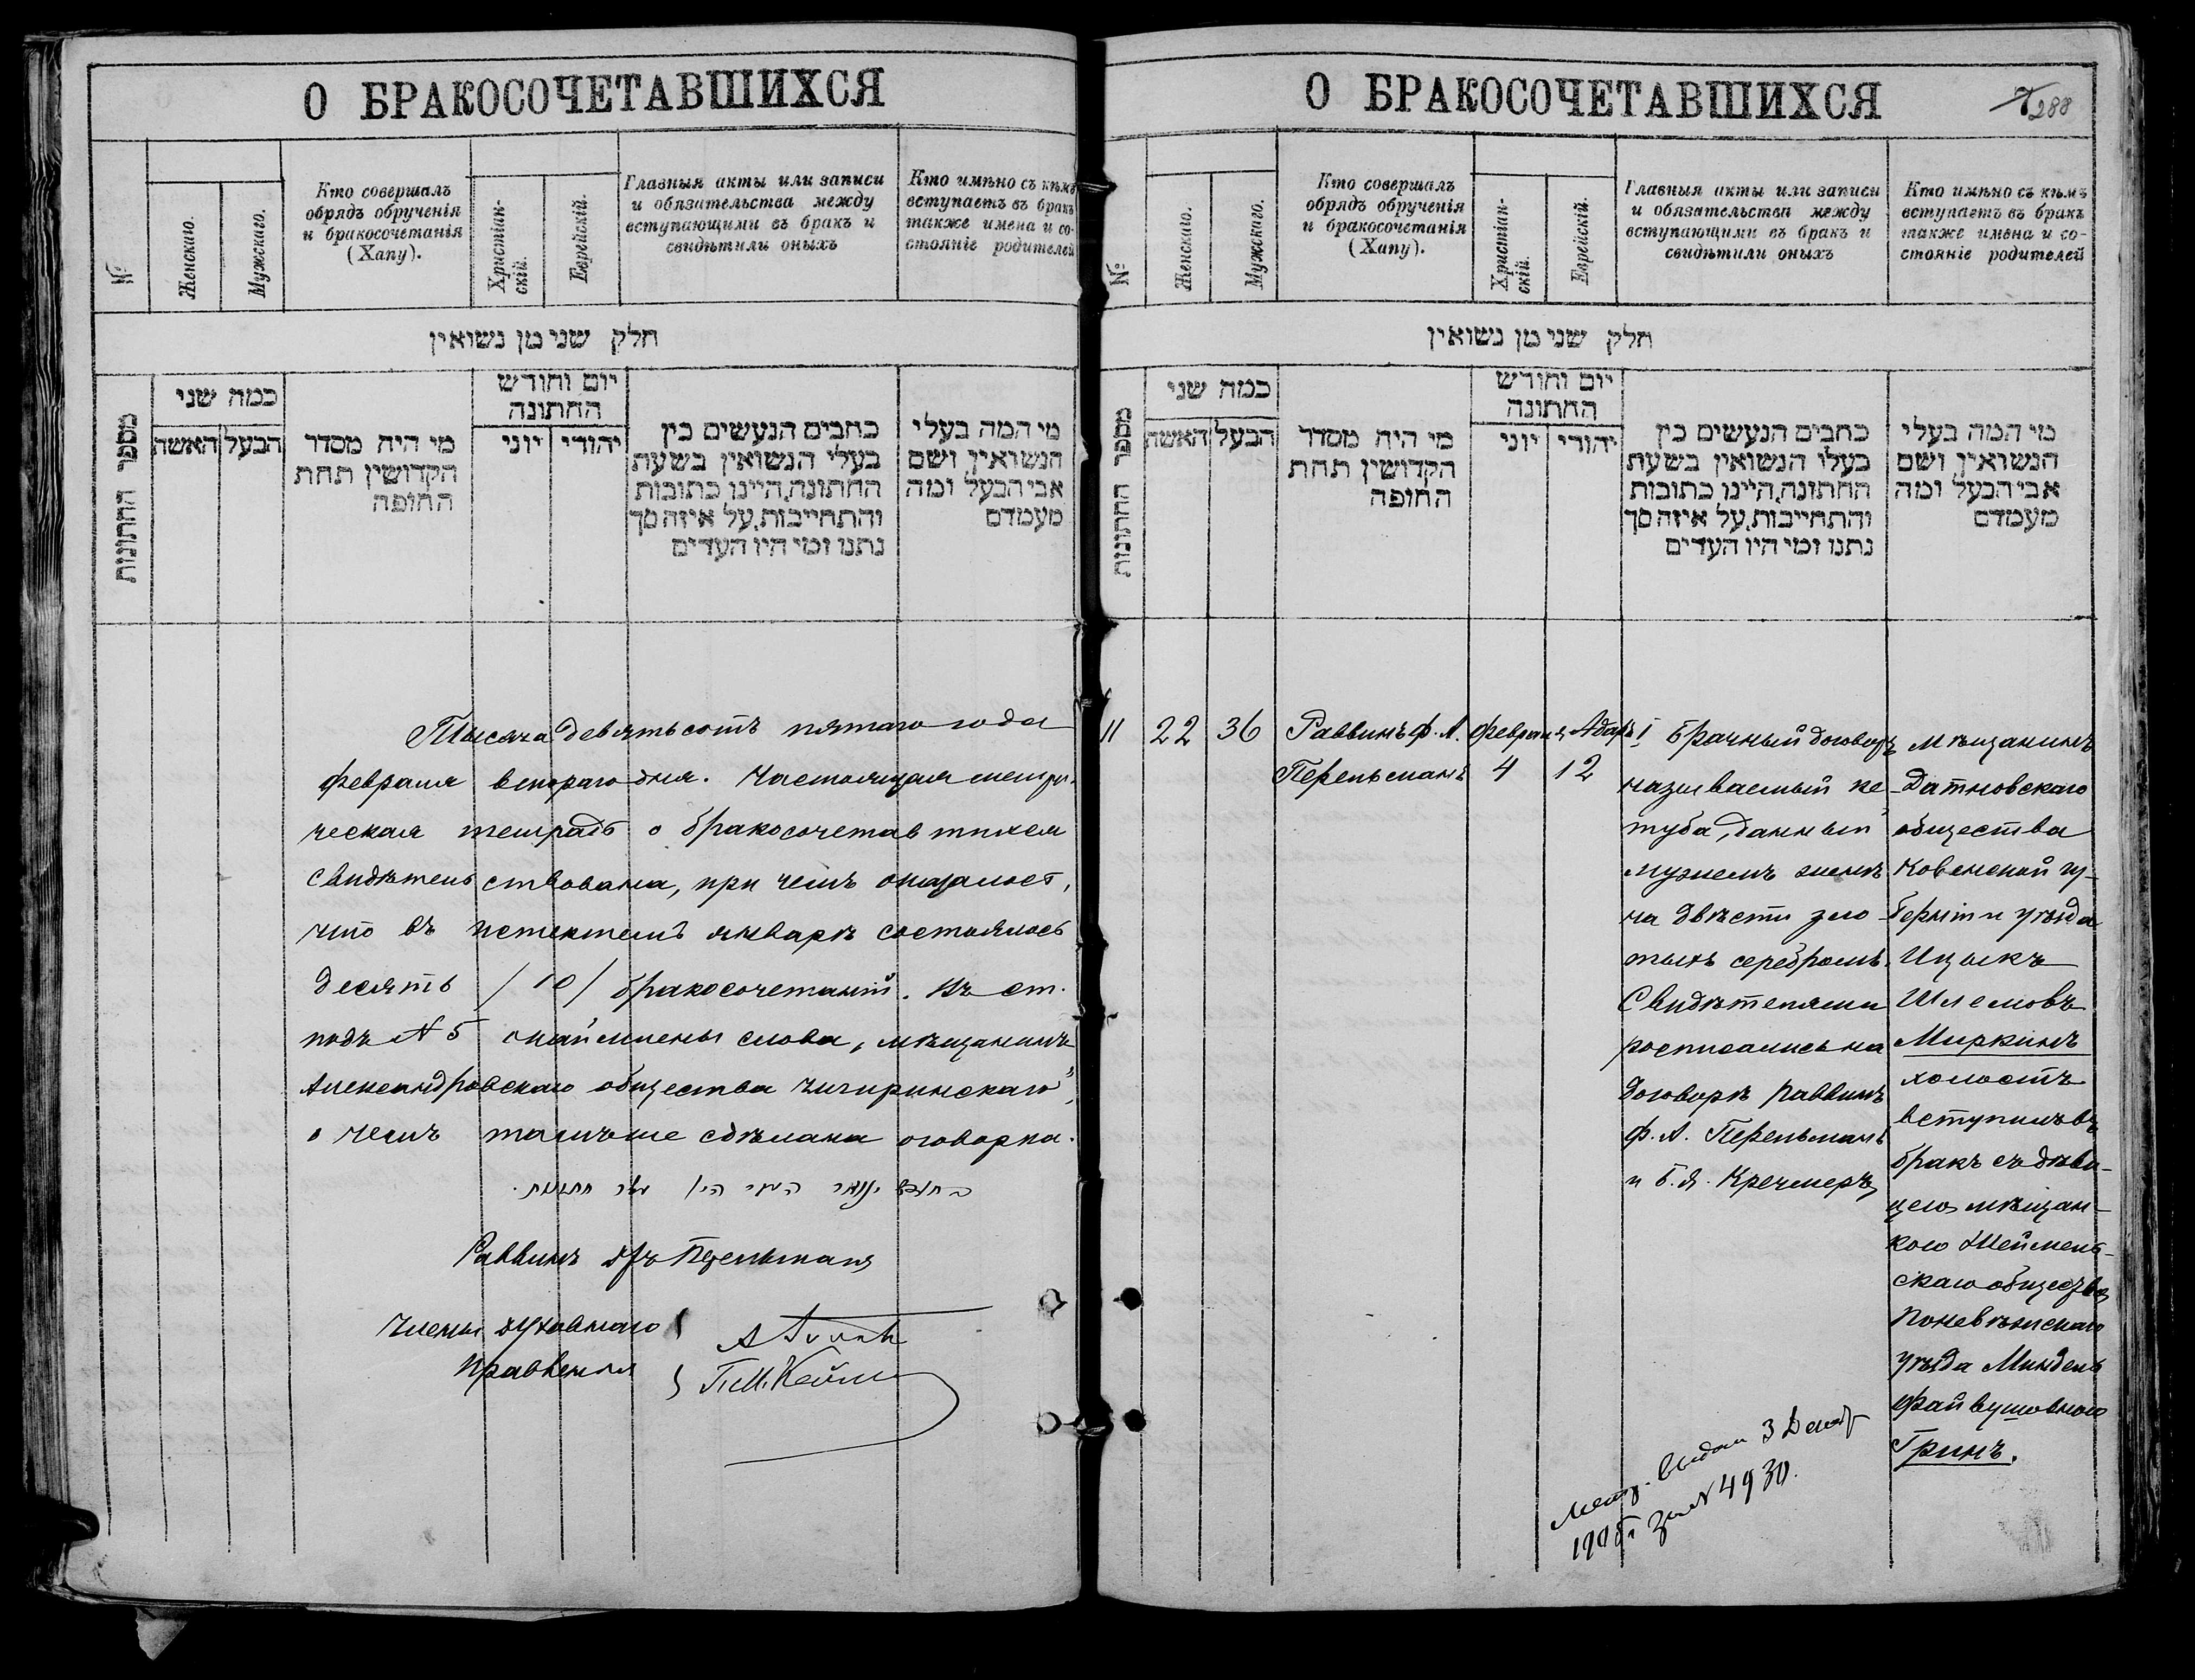 О БРАКОСОЧЕТАВШИХСЯ
№
Женскаго.
Мужскаго.
Кто совершалъ
обрядъ обрученія
и бракосочетанія
(Хапу).
Христіан-
скій.
Еврейскій.
Главныя акты или записи
и обязательства между
вступающими въ бракъ и
свидѣтили оныхъ
Кто имѣно съ кѣмъ
вступаетъ въ бракъ
также имена и со-
стояніе родителей
חלק שני מן נשואין
מספר החתונות
כמה שני
האשה
הבעל
מי היה מסדר
הקדושין תחת
החופה
יום וחודש
החתונה
יוני
יהודי
כתבים הנעשים בין
בעלי הנשואין בשעת
החתונה, היינו כתובות
והתחייבות, על איזה סך
נתנו ומי היו העדים
מי המה בעלי
הנשואין, ושם
אבי הבעל ומה
מעמדם
Тысяча девятьсотъ пятаго года
февраля втораго дня. Настоящая метри-
ческая тетрадь о бракосочетавшихся
свидѣтельствована, при чемъ оказалось,
что въ истекшемъ январѣ состоялось
десять /10/ бракосочетаній. Въ ст.
подъ № 5 окаймлены слова „мѣщанинъ
Александровскаго общества Чигиринскаго",
о чемъ тамъ же сдѣлана оговорка.
Раввинъ Др Перельманъ
Члены духовнаго
правленія
О БРАКОСОЧЕТАВШИХСЯ
288
№
Женскаго.
Мужскаго.
Кто совершалъ
обрядъ обрученія
и бракосочетанія
(Хапу).
Христіан-
скій.
Еврейскій.
Главныя акты или записи
и обязательства между
вступающими въ бракъ и
свидѣтили оныхъ
Кто имѣно съ кѣмъ
вступаетъ въ бракъ
также имена и со-
стояніе родителей
חלק שני מן נשואין
מספר החתונות
כמה שני
האשה
הבעל
מי היה מסדר
הקדושין תחת
החופה
יום וחודש
החתונה
יוני
יהודי
כתבים הנעשים בין
בעלי הנשואין בשעת
החתונה, היינו כתובות
והתחייבות, על איזה סך
נתנו ומי היו העדים
מי המה בעלי
הנשואין, ושם
אבי הבעל ומה
מעמדם
11
22
36
Раввинъ Ф. А.
Перельманъ
Февраля
4
Адаръ I
12
Брачный договоръ
называемый ке-
туба, данный
мужемъ женѣ
на двѣсти зло-
тыхъ серебромъ.
Свидѣтелями
росписались на
договорѣ Раввинъ
Ф. А. Перельманъ
и Б. Я. Кречмеръ
Мѣщанинъ
Датновскаго
общества
Ковенской гу-
берніи и уѣзда
Ицыкъ
Шлемовъ
Миркинъ
холостъ
вступилъ въ
бракъ съ дѣви-
цею мѣщан-
кою Шейменс-
скаго общества
Поневѣжскаго
уѣзда Миндель
Файвушовною
Гринъ.
Метр. выдан 3 Декаб
1905 г за № 4930.